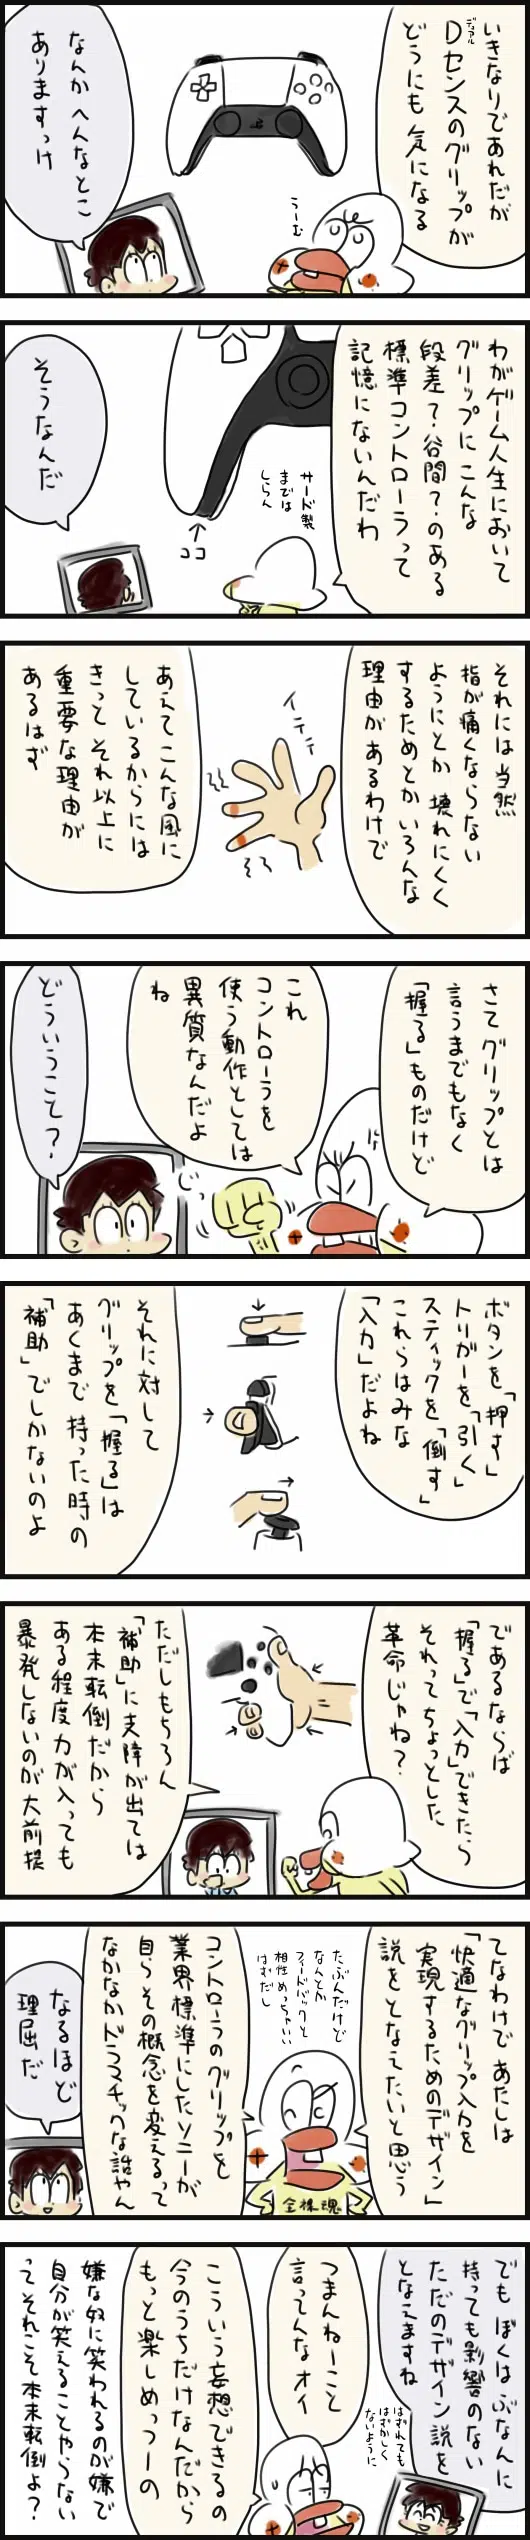 いきなりであれだが
Dセンスのグリップが
デュアル
どうにも気になる
うーむ
なんか へんなとこ
ありますっけ
わがゲーム人生において
グリップにこんな
段差？谷間？のある
標準コントローラって
記憶にないんだわ
サード製
までは
しらん
ココ
そうなんだ
それには当然
指が痛くならない
ようにとか 壊れにくく
するためとかいろんな
理由があるわけで
イテテ
あえてこんな風に
しているからには
きっと それ以上に
重要な理由が
あるはず
さてグリップとは
言うまでもなく
「握る」ものだけど
これ
コントローラを
使う動作としては
異質なんだよ
ね
どういうこと？
ボタンを「押す」
トリガーを「引く」
スティックを「倒す」
これらはみな
「入力」だよね
それに対して
グリップを「握る」は
あくまで 持った時の
「補助」でしかないのよ
であるならば
「握る」で「入力」できたら
それってちょっとした
革命じゃね？
ただしもちろん
「補助」に支障が出ては
本末転倒だから
ある程度力が入っても
暴発しないのが大前提
てなわけで あたしは
「快適なグリップ入力を
実現するためのデザイン」
説をとなえたいと思う
たぶんだけど
なんとか
フィードバックと
相性めっちゃいい
はずだし
全裸魂
コントローラのグリップを
業界標準にしたソニーが
自らその概念を変えるって
なかなかドラマチックな話やん
なるほど
理屈だ
でも ぼくは ぶなんに
持っても影響のない
ただのデザイン説を
となえますね
はずれても
はずかしく
ないように
つまんねーこと
言ってんなオイ
こういう妄想できるの
今のうちだけなんだから
もっと楽しめっつーの
嫌な奴に笑われるのが嫌で
自分が笑えることやらない
ってそれこそ本末転倒よ？